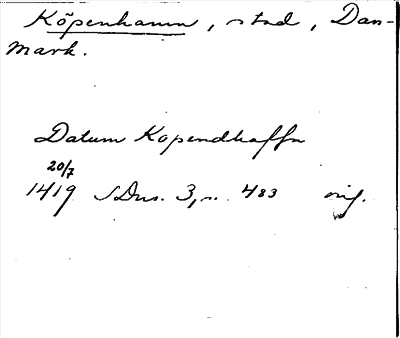 Köpenhamn, stad, Dan-
mark.
Datum Kopendhaffn
20/7
1419 SDns. 3, s. 483 orig.